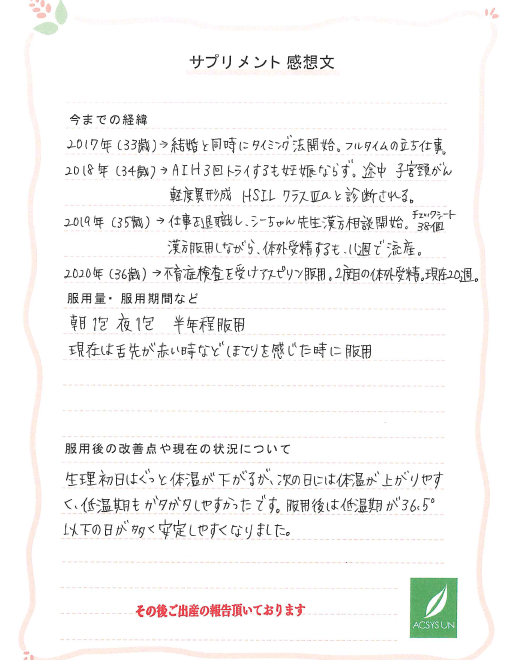 サプリメント 感想文
今までの経緯
2017年 (33歳) → 結婚と同時にタイミング法開始。フルタイムの立ち仕事。
2018年 (34歳) → AIH3回トライするも妊娠ならず。途中 子宮頸がん
軽度異形成 HSIL クラスⅢaと診断される。
チェックシート
38個
2019年 (35歳) → 仕事を退職し、シーちゃん先生漢方相談開始。
漢方服用しながら、体外受精するも、11週で流産。
2020年 (36歳) → 不育症検査を受けアスピリン服用。2度目の体外受精。現在20週。
服用量・服用期間など
朝1包 夜1包 半年程服用
現在は舌先が赤い時など ほてりを感じた時に服用
服用後の改善点や現在の状況について
生理初日はぐっと体温が下がるが、次の日には体温が上がりやす
く、低温期もガタガタしやすかったです。服用後は低温期が36.5°
以下の日が多く安定しやすくなりました。
その後ご出産の報告頂いております
ACSYS UN